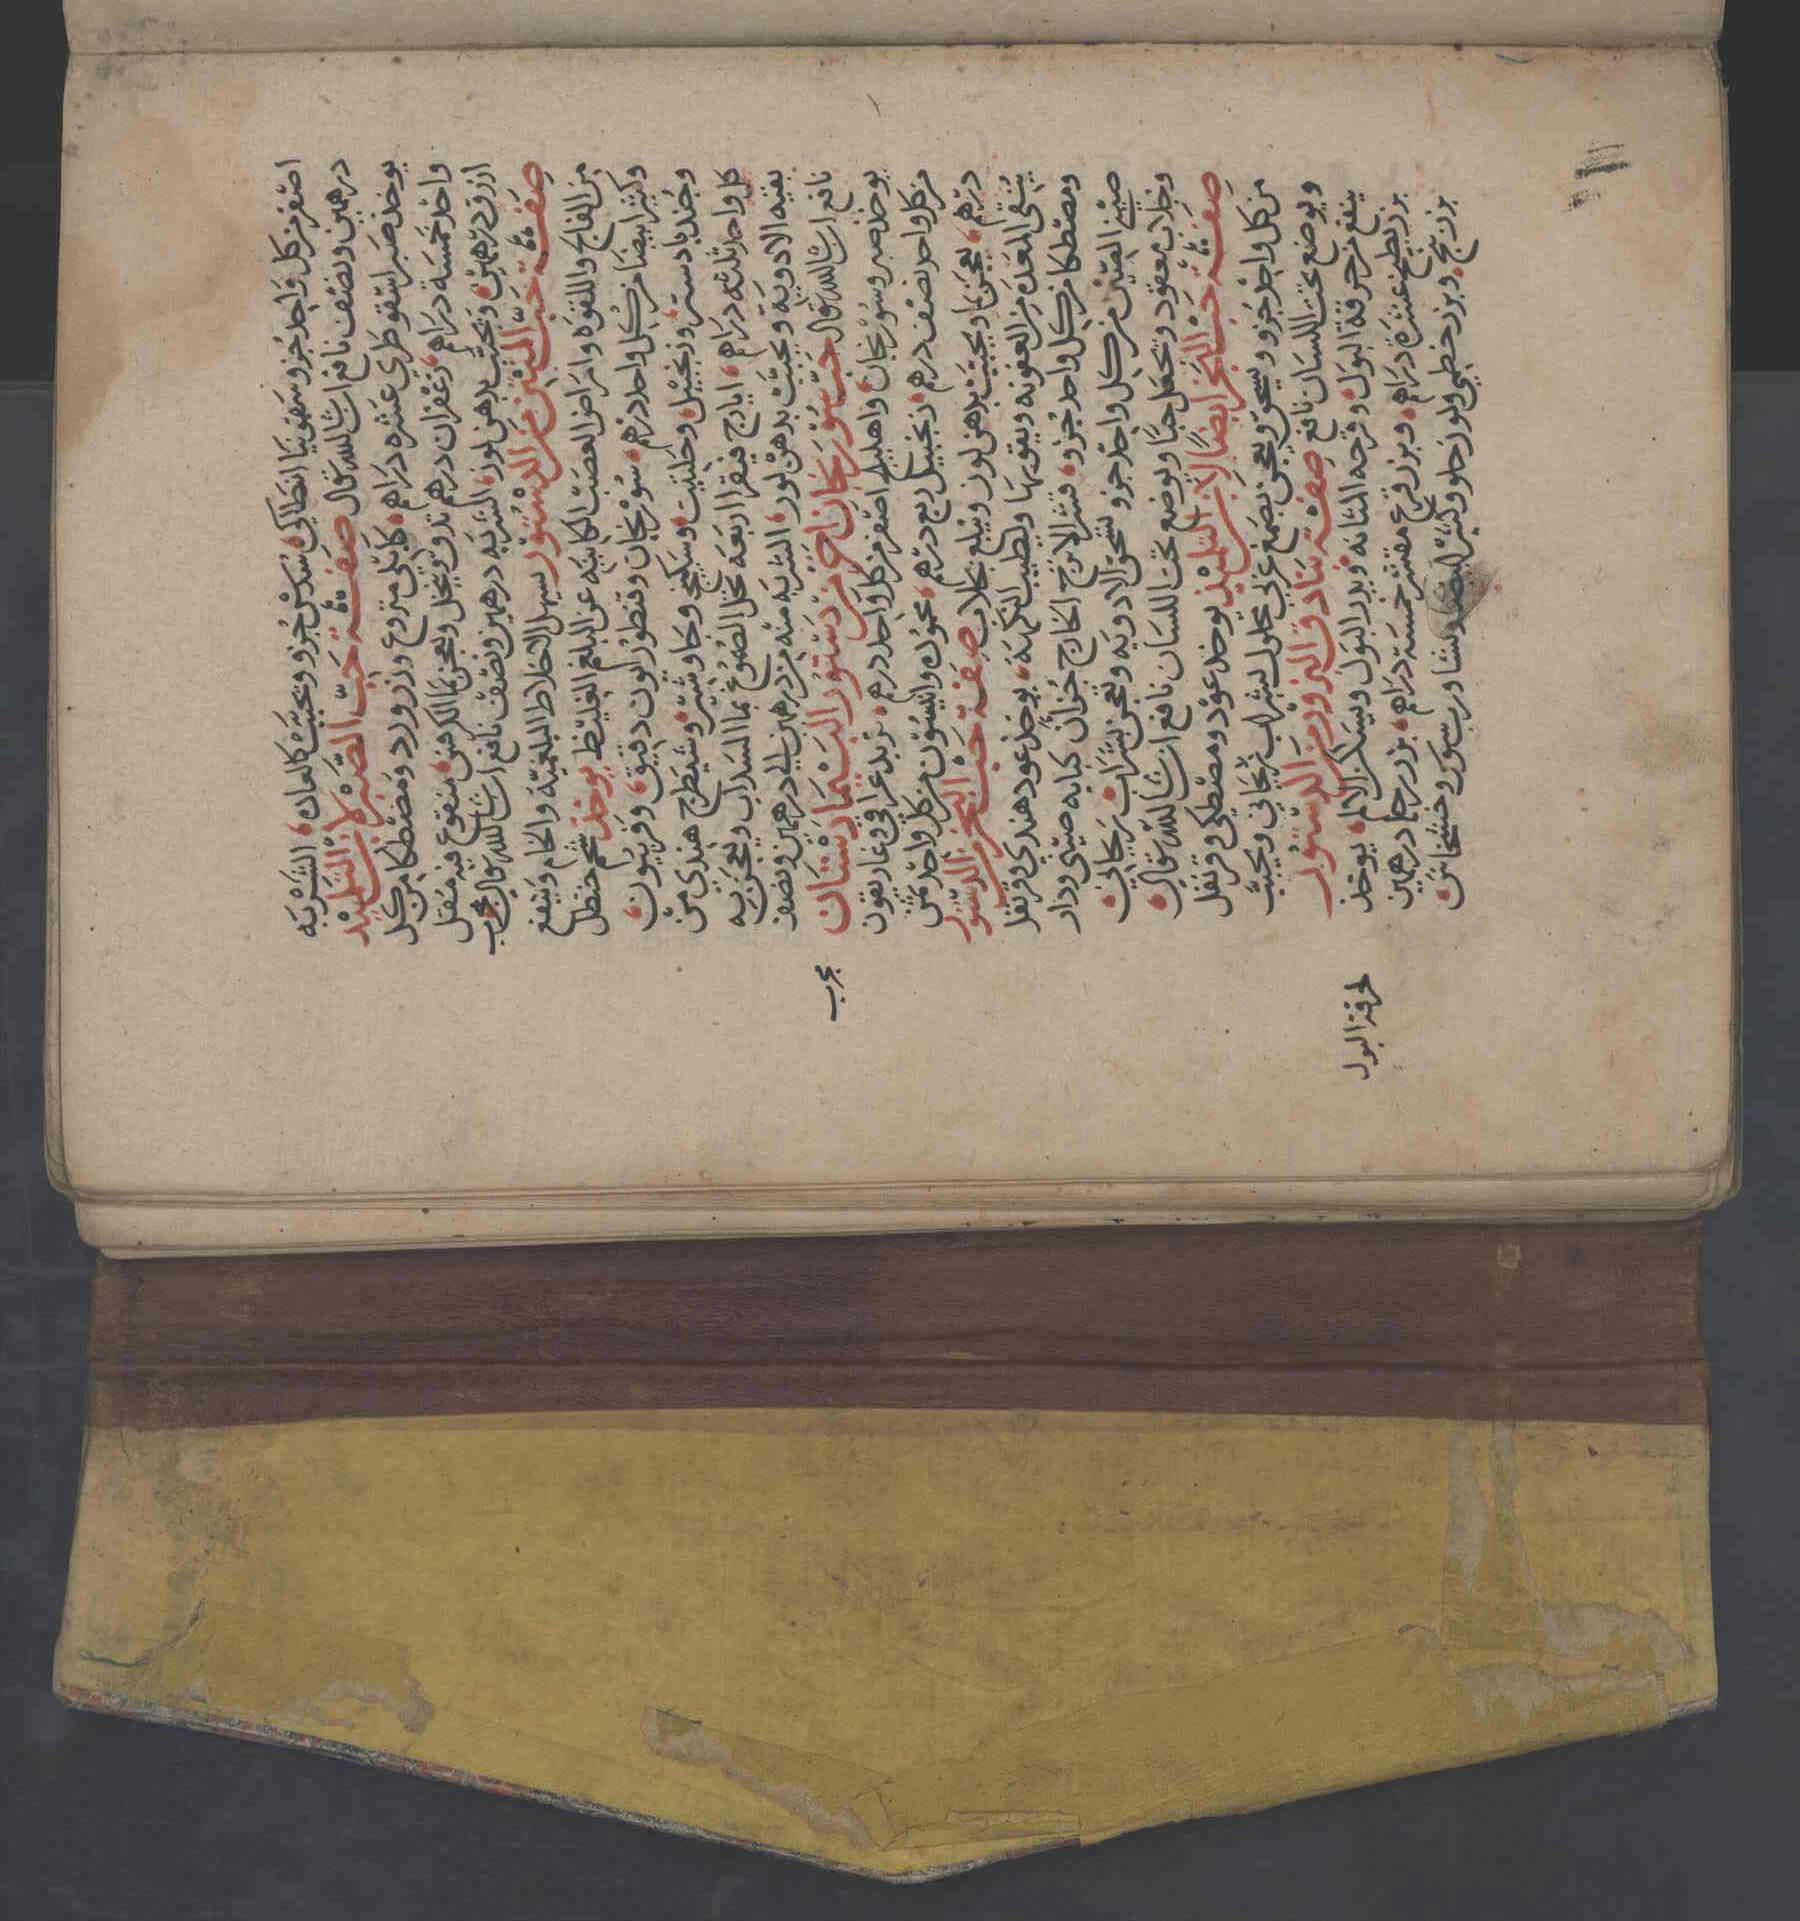 اصفر من كل واحد جزو سقمونيا انطاكى سدس جزو ويحبب كالعاده الشربه
درهمين ونصف نافع ان شا الله تعالى صفة حب الصبر لابن التلميذ
يوخذ صبر اسقوطري عشره دراهم كابلي منزوع وزرورد ومصطكا من كل
واحد خمسة دراهم زعفران درهم يدق وينخل ويعجن بما الكرفس منقوع فيه مقل
ازرق درهمين ويحبب بدهن لوز الشربه درهمين ونصف نافع ان شا الله تعالى مجرب
صفة حب المنتن من الدستور يسهل الاخلاط البلغمية والخام وينفع
من الفالج واللقوه وامراض العصب الكاينه عن البلغم الغليظ يوخذ شحم حنظل
وكثيرا بيضا من كل واحد درهم سورنجان وقنطوريون دقيق وفربيون
وجندبادستر وزنجبيل وحلتيت وسكبينج وجاوشير وشيطرج هندي من
كل واحد ثلثه دراهم ايارج فيقرا اربعه تحل الصموغ بما السداب ويعجن به
بقيه الادوية ويحبب بدهن لوز الشربه منه من درهمين الى درهمين ونصف
نافع ان شا الله تعالى حب سورنجان اخر من دستور البيمارستان
يوخذ صبر وسورنجان واهليلج اصفر من كل واحد درهم تربد عراقي غاريقون
من كل واحد نصف درهم زنجبيل ربع درهم محموده وانيسون من كل واحد ثمن
درهم يعجن بما ويحبب بدهن لوز ويبلع بجلاب صفة حب البخر من الدستور
ينقى المعده من العفونه ويقويها ويطيب النكهة يوخذ عود هندي وقرنفل
ومصطكا من كل واحد جزو قشر الاترج الخارج جزان كبابه صيني ودار
صيني الصين من كل واحد جزو تسحق الادويه وتعجن بشراب ريحاني
وجلاب معقود ويجعل حبا ويوضع تحت اللسان نافع ان شا الله تعالى
صفة حب البخر ايضا لابن التلميذ يوخذ عود ومصطكى وقرنفل
من كل واحد جزو ويسحق ويعجن بصمغ عربي محلول بشراب ريحاني ويحبب
ويوضع تحت اللسان نافع صفة بنادق البزور من الدستور
ينفع من حرقة البول وقرحه المثانه ويدر البول ويسكن الالم يوخذ
بزر بطيخ عشرة دراهم وبزر قرع مقشر خمسة دراهم بزر رجله درهمين
بزر بنج وبزر خطمي ولوز حلو وكثيرا بيضا ونشا ورب سوس وخشخاش
مجرب
لحرقة البول